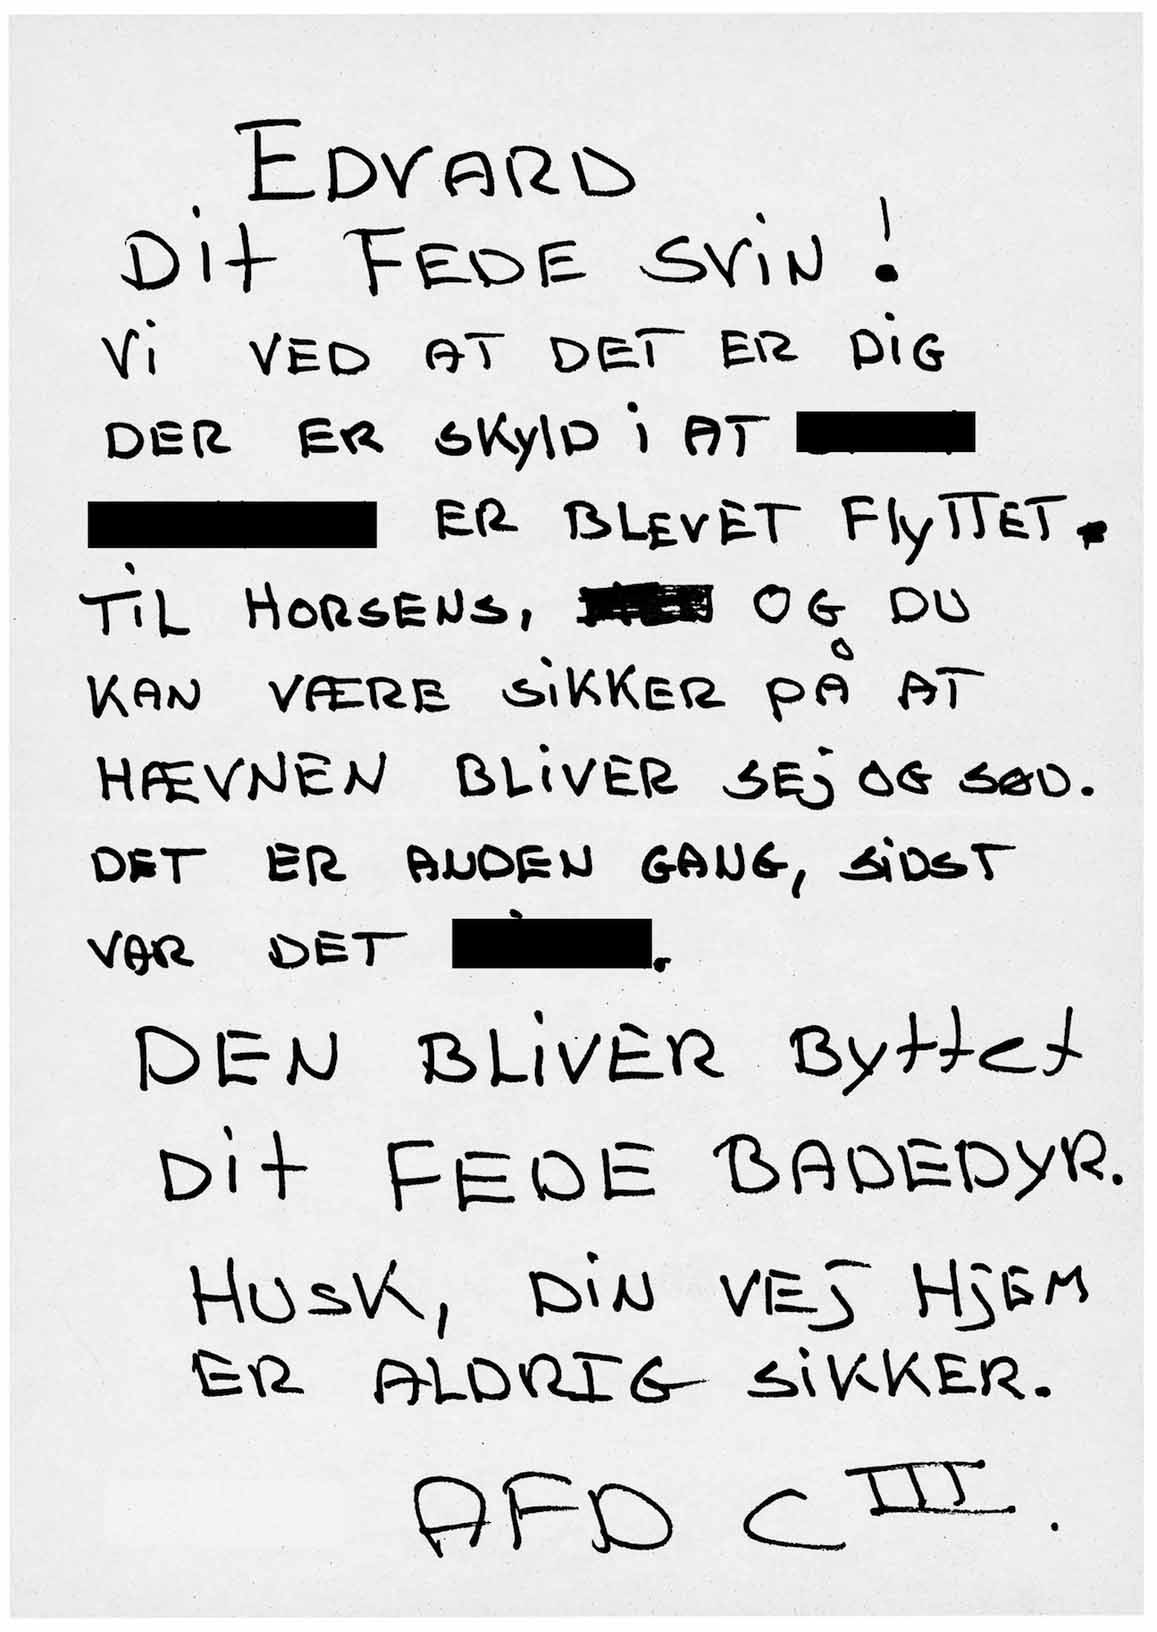 EDVARD
Dit FEDE SViN!
Vi VED AT DET ER DiG
DER ER SKylD i AT
ER BLEVET FlyTTET.
TiL HORSENS, OG DU
KAN VÆRE SiKKER PÅ AT
HÆVNEN BLiVER SEj OG SØD.
DET ER ANDEN GANG, SiDST
VAR DET .
DEN BLiVER Byttet
Dit FEDE BADEDYR.
HUSK, DiN VEj HjEM
ER ALDRIG SiKKER.
AFD C III.